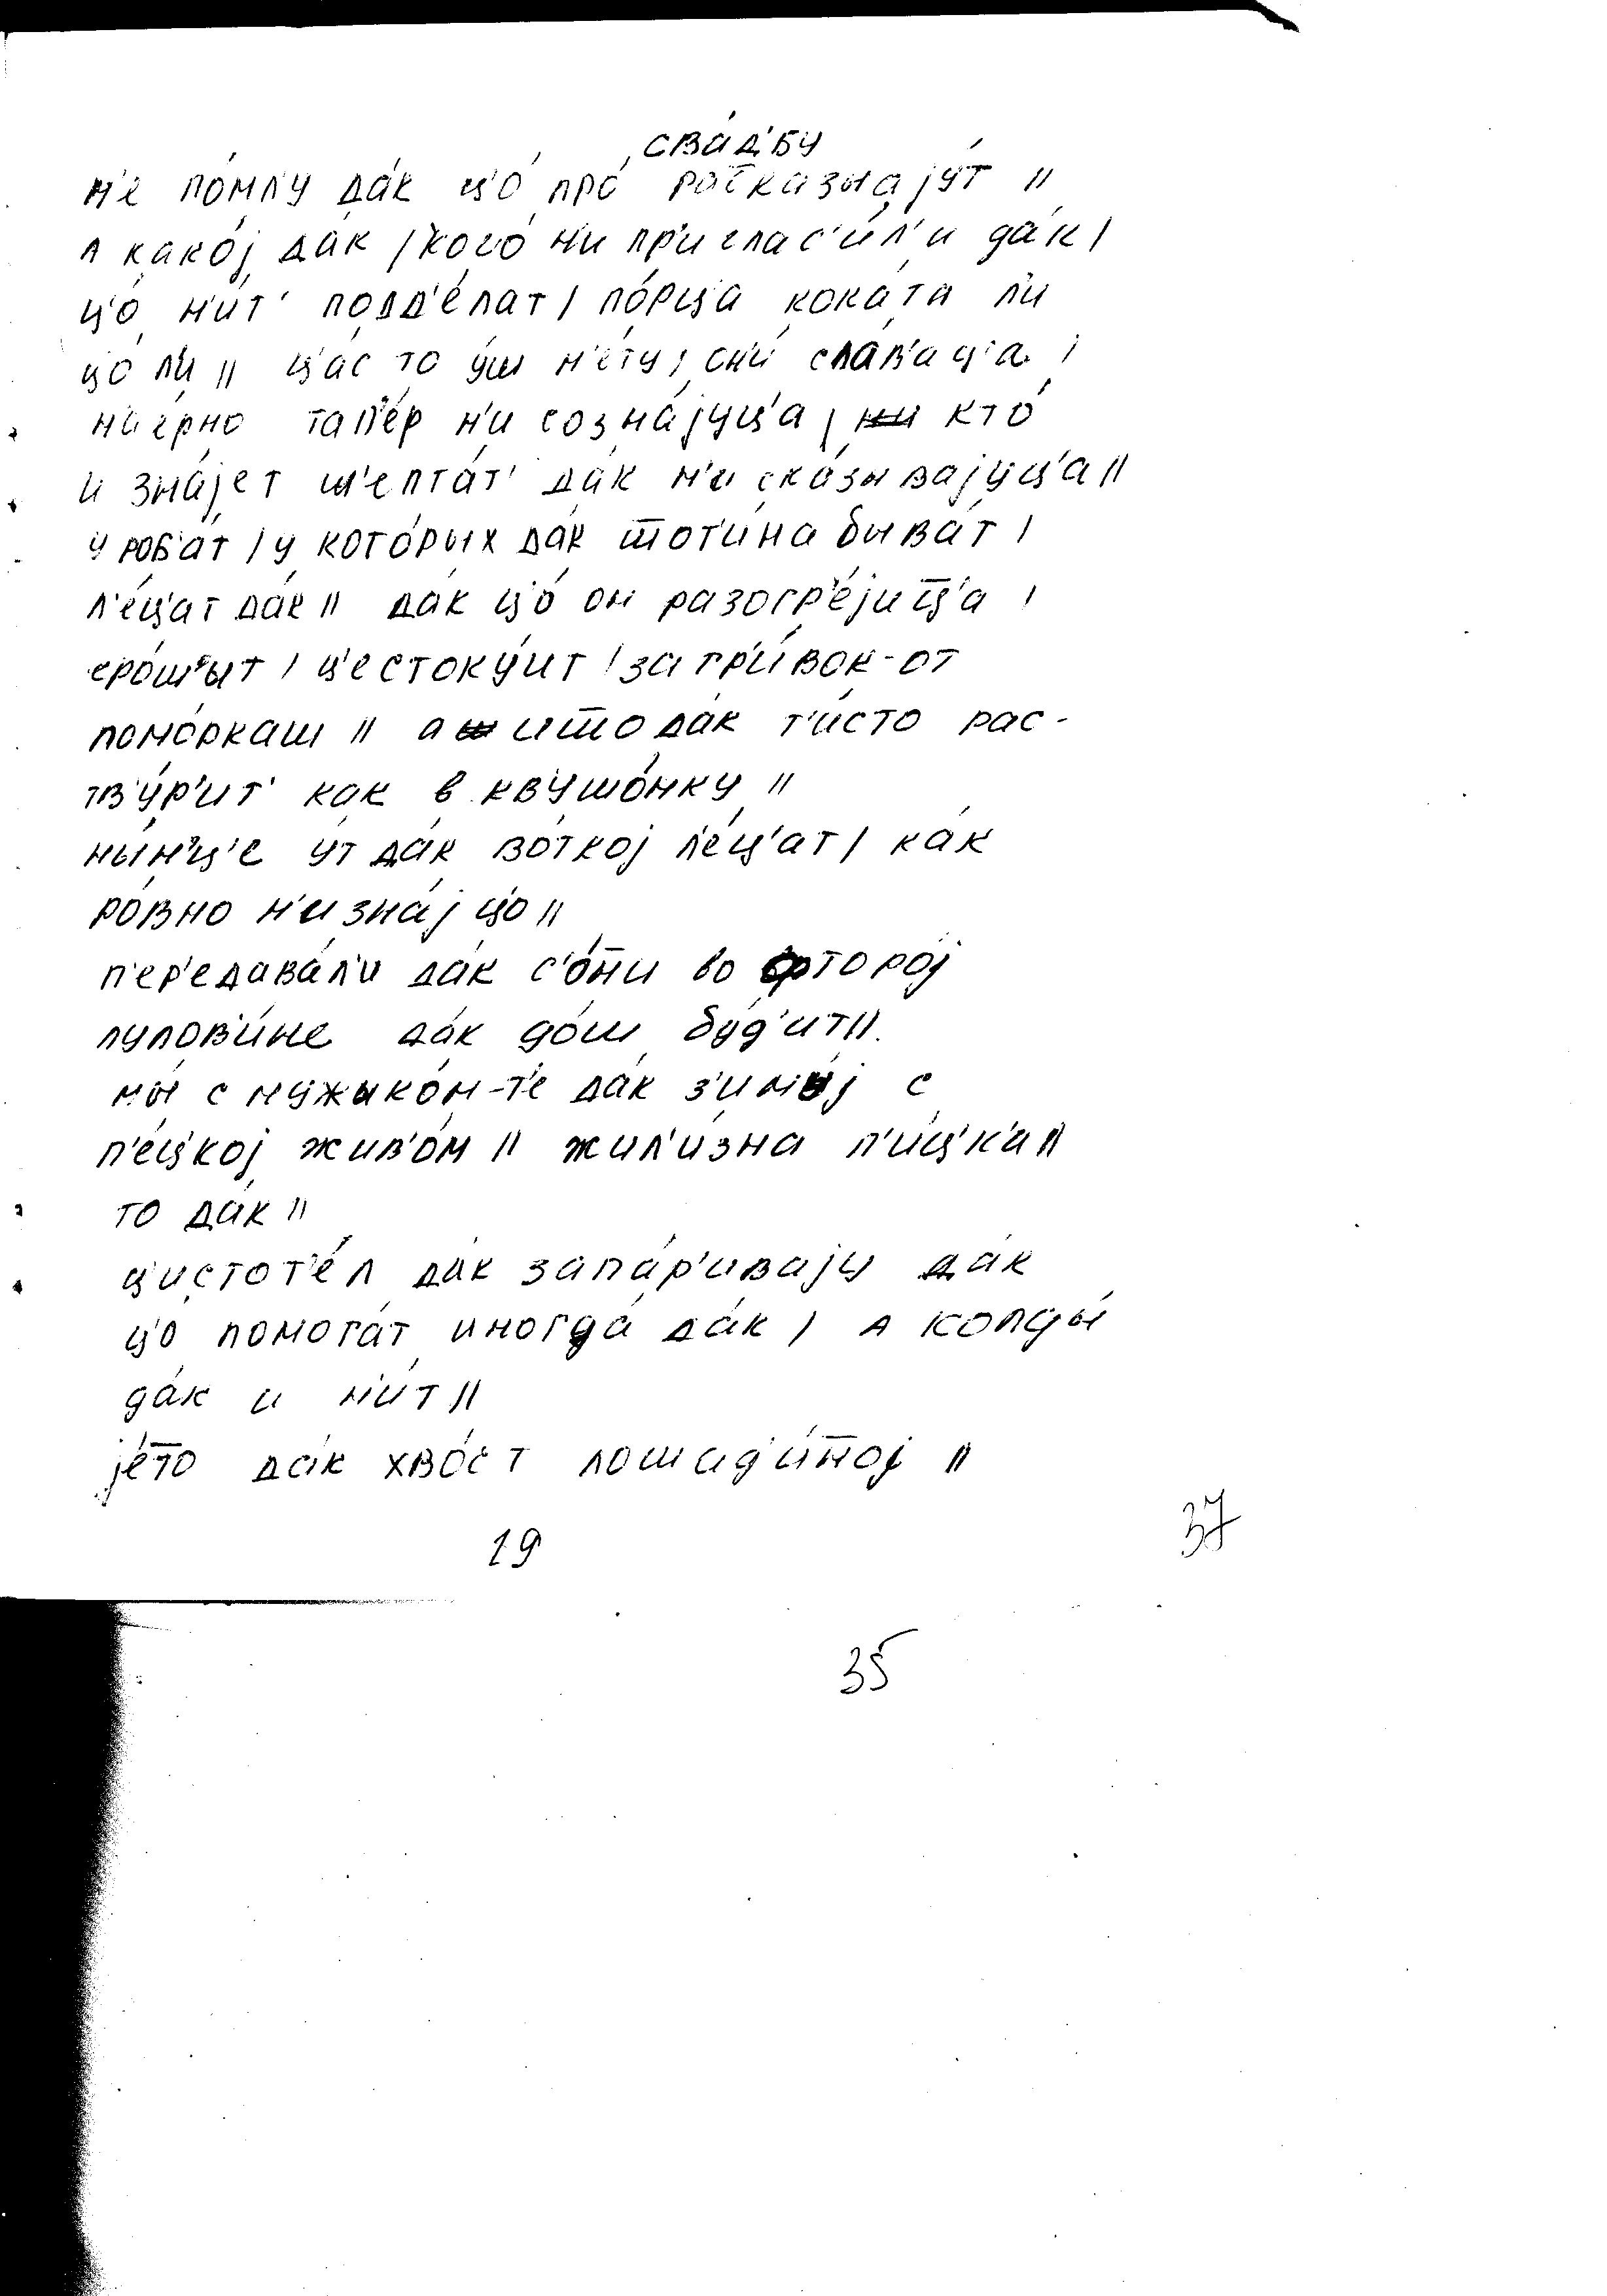 сва́д'бу
н'е по́мл'у да́к ц'о́ про́ росказ́ыајут ||
а како́ј да́к / кого́ н'и пр'иглас'и́л'и да́к /
ц'о́ н'ит' подд'е́лат / по́рц'а кока́та л'и
ц'о́ л'и || ц'ас то уш н'е́ту / он'и́ сла́в'ац'а /
нае́рно тап'е́р н'и созна́јуц'а / кто́
и зна́јет ш'епта́т' да́к н'и ска́зывајуц'а ||
у роб'а́т / у кото́рых да́к шот'и́на быва́т /
л'е́ц'ат да́к || да́к ц'о́ он разогр'е́јиц'а /
еро́шыт / ц'естоку́ит / за гр'и́вок-от
помо́ркаш || а ишшо да́к т'и́сто рас-
тв'у́р'ит как в кв'ушо́нку ||
ны́н'ц'е у́т да́к во́ткој л'е́ц'ат / ка́к
ро́вно н'изна́ј ц'о ||
п'ер'едава́л'и да́к с'о́нн'и во фторо́ј
пулов'и́не да́к до́ш бу́д'ит ||
мы́ с мужыко́м-т'е да́к з'имо́ј с
п'е́ц'кој жив'о́м || жил'и́зна п'и́ц'к'а ||
то да́к ||
ц'истот'е́л да́к запа́р'ивају да́к
ц'о помога́т иногда́ да́к / а колды́
да́к и н'и́т ||
је́то да́к хво́ст лошад'и́ној ||
19
37
35